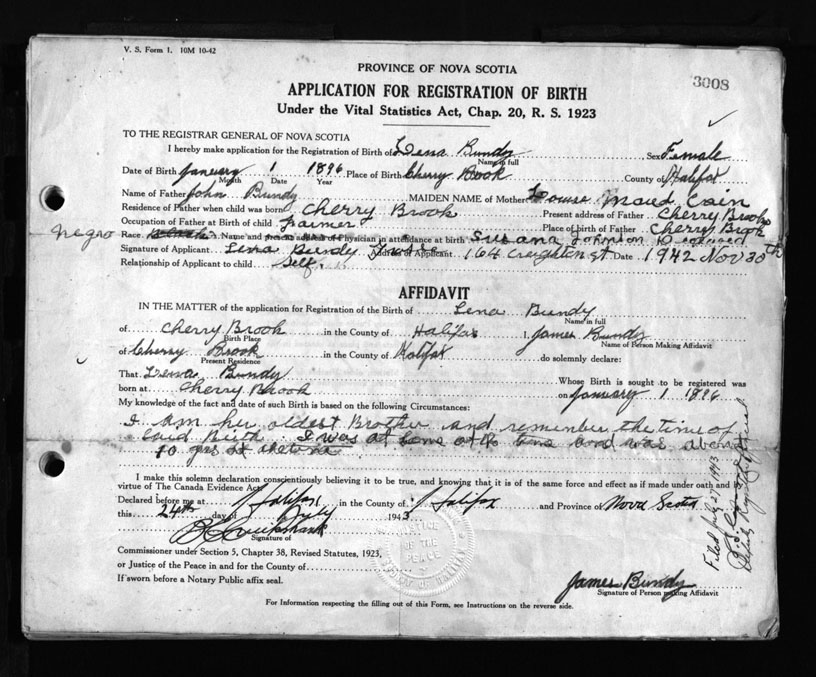 V. S. Form 1. 10M 10-42
PROVINCE OF NOVA SCOTIA
3008
APPLICATION FOR REGISTRATION OF BIRTH
Under the Vital Statistics Act, Chap. 20, R. S. 1923
TO THE REGISTRAR GENERAL OF NOVA SCOTIA
I hereby make application for the Registration of Birth of Lena Bundy Sex Female
Name in full
Date of Birth January 1 1896 Place of Birth Cherry Brook County of Halifax
Month Date Year
Name of Father John Bundy MAIDEN NAME of Mother Louise Maud Cain
Residence of Father when child was born Cherry Brook Present address of Father Cherry Brook
Occupation of Father at Birth of child Farmer Place of birth of Father Cherry Brook
Negro Race Black Name and present address of Physician in attendance at birth Susana Johnson Deceased
Signature of Applicant Lena Bundy Address of Applicant 164 Creighton St Date 1942 Nov 30th
Relationship of Applicant to child Self
AFFIDAVIT
IN THE MATTER of the application for Registration of the Birth of Lena Bundy
Name in full
of Cherry Brook in the County of Halifax I, James Bundy
Birth Place Name of Person Making Affidavit
of Cherry Brook in the County of Halifax do solemnly declare:
Present Residence
That Lena Bundy Whose Birth is sought to be registered was
born at Cherry Brook on January 1 1896
My knowledge of the fact and date of such Birth is based on the following Circumstances:
I am her oldest Brother and remember the time of
Said Birth I was at home at the time and was about
10 yrs
I make this solemn declaration conscientiously believing it to be true, and knowing that it is of the same force and effect as if made under oath and by
virtue of The Canada Evidence Act.
Declared before me at Halifax in the County of Halifax and Province of Nova Scotia
this 24th day of July 1943
Signature of
Commissioner under Section 5, Chapter 38, Revised Statutes, 1923,
or Justice of the Peace in and for the County of
If sworn before a Notary Public affix seal.
JUSTICE OF THE PEACE
James Bundy
Signature of Person making Affidavit
For Information respecting the filling out of this Form, see Instructions on the reverse side.
Filed July 27 1943
Deputy Registrar General